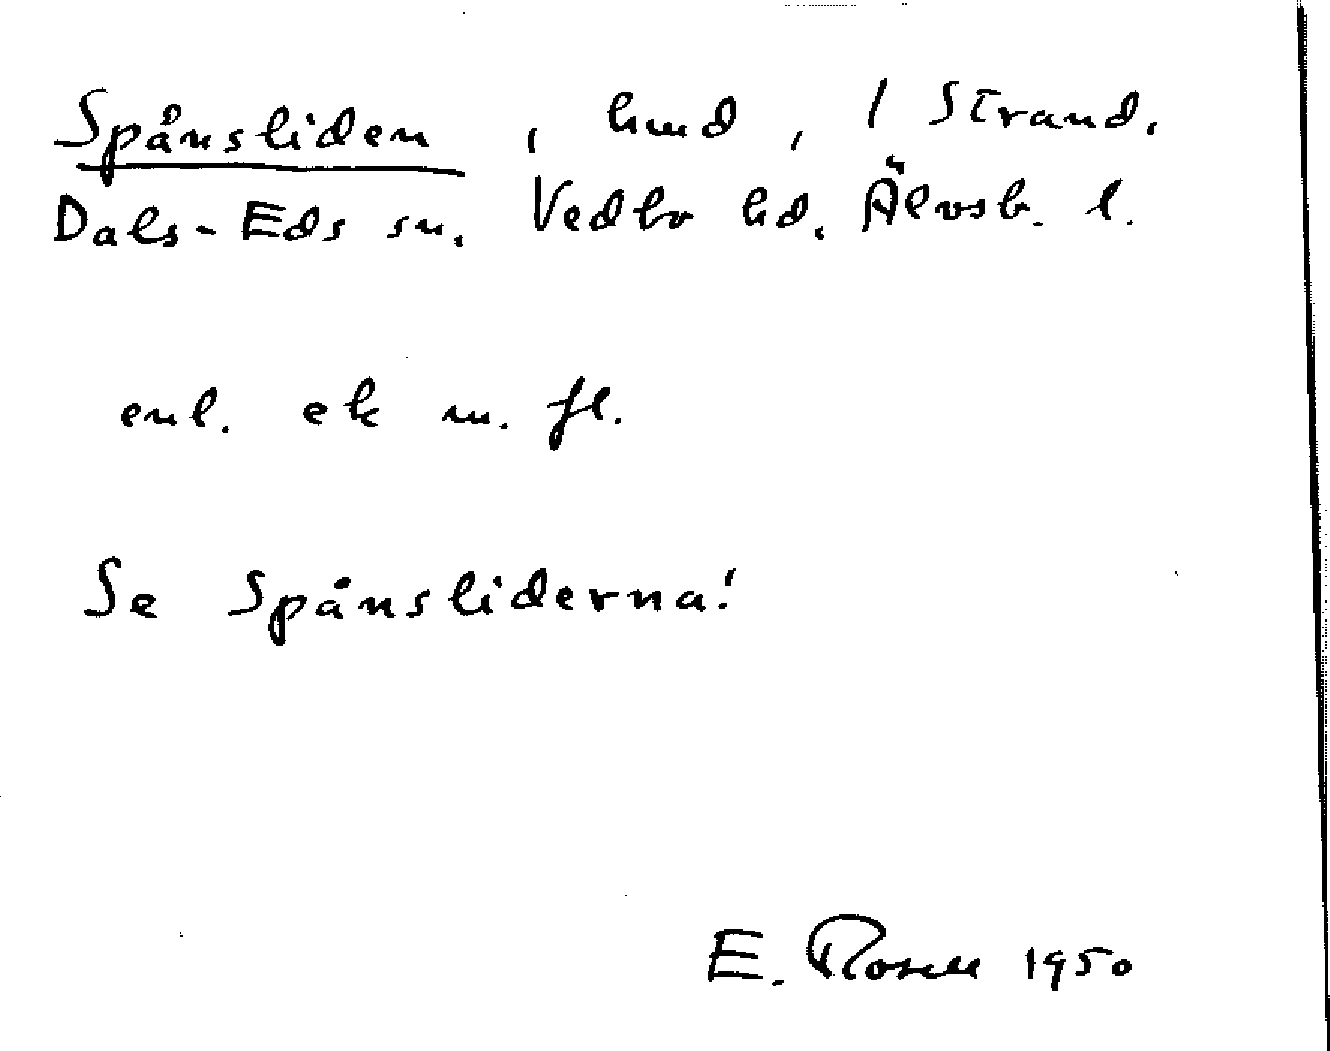 Spånsliden, hmd, / Strand.
Dals-Eds sn. Vedbo hd. Älvsb. l.
enl. ek m. fl.
Se Spånsliderna!
E. Rosell 1950